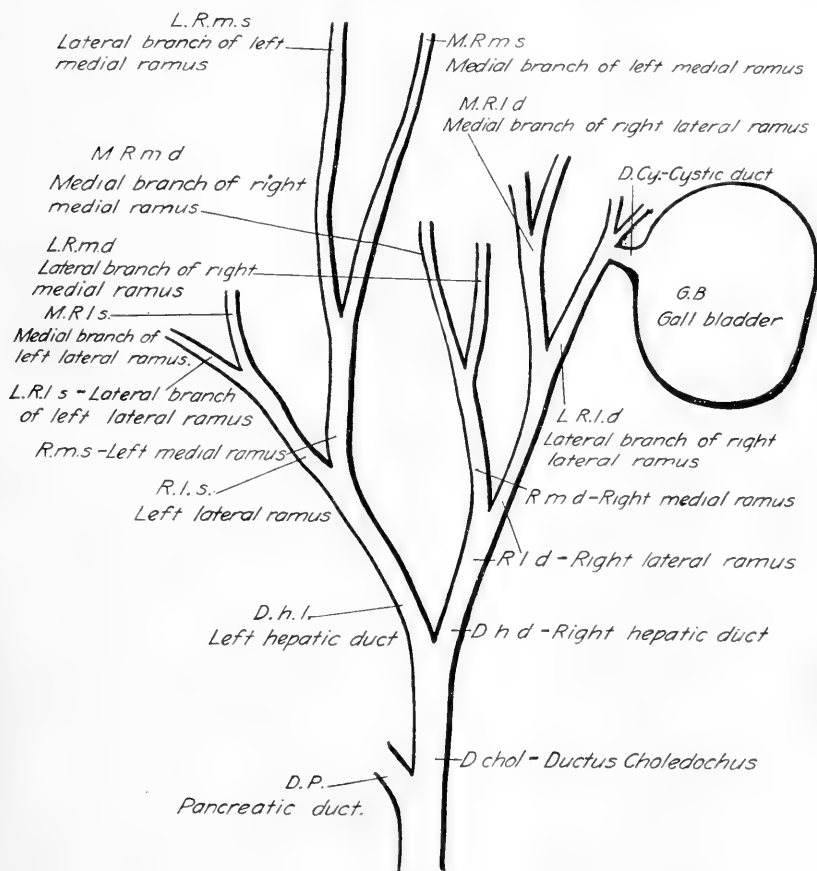 L.R.m.s
Lateral branch of left
medial ramus
M.Rm s
Medial branch of left medial ramus
M.R.l d
Medial branch of right lateral ramus
D.Cy.-Cystic duct
M R m d
Medial branch of right
medial ramus
L.R.m.d
Lateral branch of right
medial ramus
M.R l s.
Medial branch of
left lateral ramus.
L.R.l s - Lateral branch
of left lateral ramus
R.m.s - Left medial ramus
R.l.s.
Left lateral ramus
G.B
Gall bladder
L R.l.d
Lateral branch of right
lateral ramus
R m d - Right medial ramus
R l d - Right lateral ramus
D.h.l.
Left hepatic duct
D h d - Right hepatic duct
D chol - Ductus Choledochus
D.P.
Pancreatic duct.